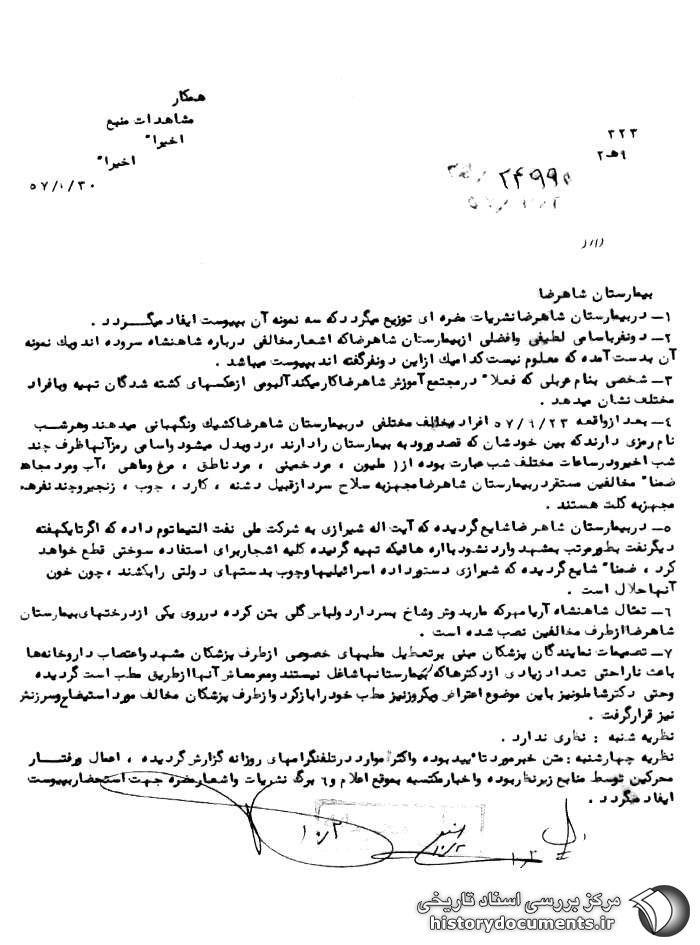 همکار
مشاهدات منبع
اخیرا"
اخیرا"
۵۷/۱۰/۳۰
۳۲۲
۹هـ۲
۲۴۹۹۰
بیمارستان شاهرضا
۱ـ دربیمارستان شاهرضانشریات مضره ای توزیع میگرددکه سه نمونه آن بپیوست ایفاد میگـــردد .
۲ـ دونفرباسامی لطیفی وافضلی ازبیمارستان شاهرضاکه اشعارمخالفی درباره شاهنشاه سروده اندویك نمونه
آن بدست آمده که معلوم نیست کدامیك ازاین دونفرگفته اندبپیوست میباشد .
۳ـ شخصی بنام عربلی که فعلا" درمجتمع آموزش شاهرضاکارمیکندآلبومی ازعکسهای کشته شدگان تهیه وبافراد
مختلف نشان میدهد .
۴ـ بعد ازواقعه ۵۷/۹/۲۳ افراد مخالف مختلفی دربیمارستان شاهرضاکشیك ونگهبانی میدهند وهرشب
نام رمزی دارندکه بین خودشان که قصد ورود به بیمارستان را دارند ،ردوبدل میشود واسامی رمزآنهاظرف چند
شب اخیرودرساعات مختلف شب عبارت بوده از( طیون ، مرد خمینی ، مرد ناطق ، مرغ وماهی ،آب ومرد مجاهد
ضمنا" مخالفین مستقردربیمارستان شاهرضامجهزبه سلاح سرد ازقبیل دشنه ، کارد ، چوب ، زنجیروچند نفرهم
مجهزبه کلت هستند .
۵ـ دربیمارستان شاهرضاشایع گردیده که آیت اله شیرازی به شرکت ملی نفت التیماتوم داده که اگرتایکهفته
دیگرنفت بطورمرتب بمشهد وارد نشود بااره هائیکه تهیه گردیده کلیه اشجاربرای استفاده سوختی قطع خواهد
کرد ، ضمنا" شایع گردیده که شیرازی دستورداده اسرائیلیهاوچوب بدستهای دولتی رابکشند ،چون خون
آنهاحلال است .
۶ـ تمثال شاهنشاه آریامهرکه ماربدوش وشاخ بسردارد ولباس گلی بتن کرده درروی یکی ازدرختهای‌بیمارستان
شاهرضاازطرف مخالفین نصب شده است .
۷ـ تصمیمات نمایندگان پزشکان مبنی برتعطیل مطبهای خصوصی ازطرف پزشکان مشهد واعتصاب داروخانه‌ها
باعث ناراحتی تعداد زیادی ازدکترهاکه بیمارستانهاشاغل نیستند وممرمعاش آنهاازطریق مطب است گردیده
وحتی دکترشاطونیز باین موضوع اعتراض ویکروزنیز مطب خود رابازکرد وازطرف پزشکان مخالف مورد استیضاح وسرزنش
نیز قرارگرفت .
نظریه شنبه : نظری ندارد .
نظریه چهارشنبه : متن خبرمورد تائیید بوده واکثر موارد درتلفنگرامهای روزانه گزارش گردیده ، اعمال ورفتـــار
محرکین توسط منابع زیرنظربوده واخبارمکتسبه بموقع اعلام و۶ برگ نشریات واشعارمضره جهت استحضاربپیوست
ایفاد میگردد .
۱۰/۳
۱۰/۲
مرکز بررسی اسناد تاریخی
historydocuments.ir